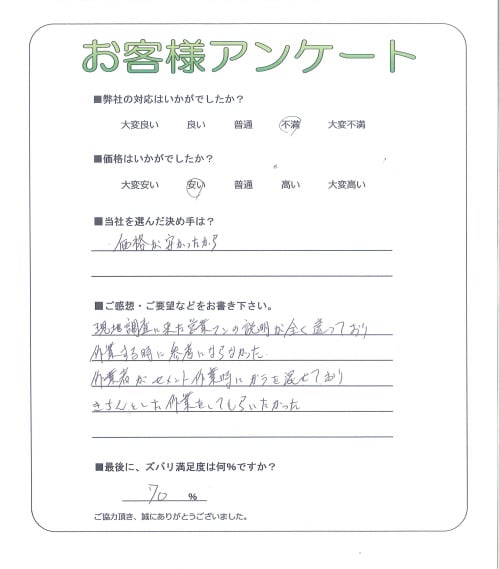 お客様アンケート
■弊社の対応はいかがでしたか？
大変良い 良い 普通 不満 大変不満
■価格はいかがでしたか？
大変安い 安い 普通 高い 大変高い
■当社を選んだ決め手は？
価格が安かったから
■ご感想・ご要望などをお書き下さい。
現場調査に来た営業マンの説明が全く違っており
作業する時に参考にならなかった
作業者がセメント作業時にガラを混ぜており
きちんとした作業をしてもらいたかった
■最後に、ズバリ満足度は何％ですか？
70 ％
ご協力頂き、誠にありがとうございました。